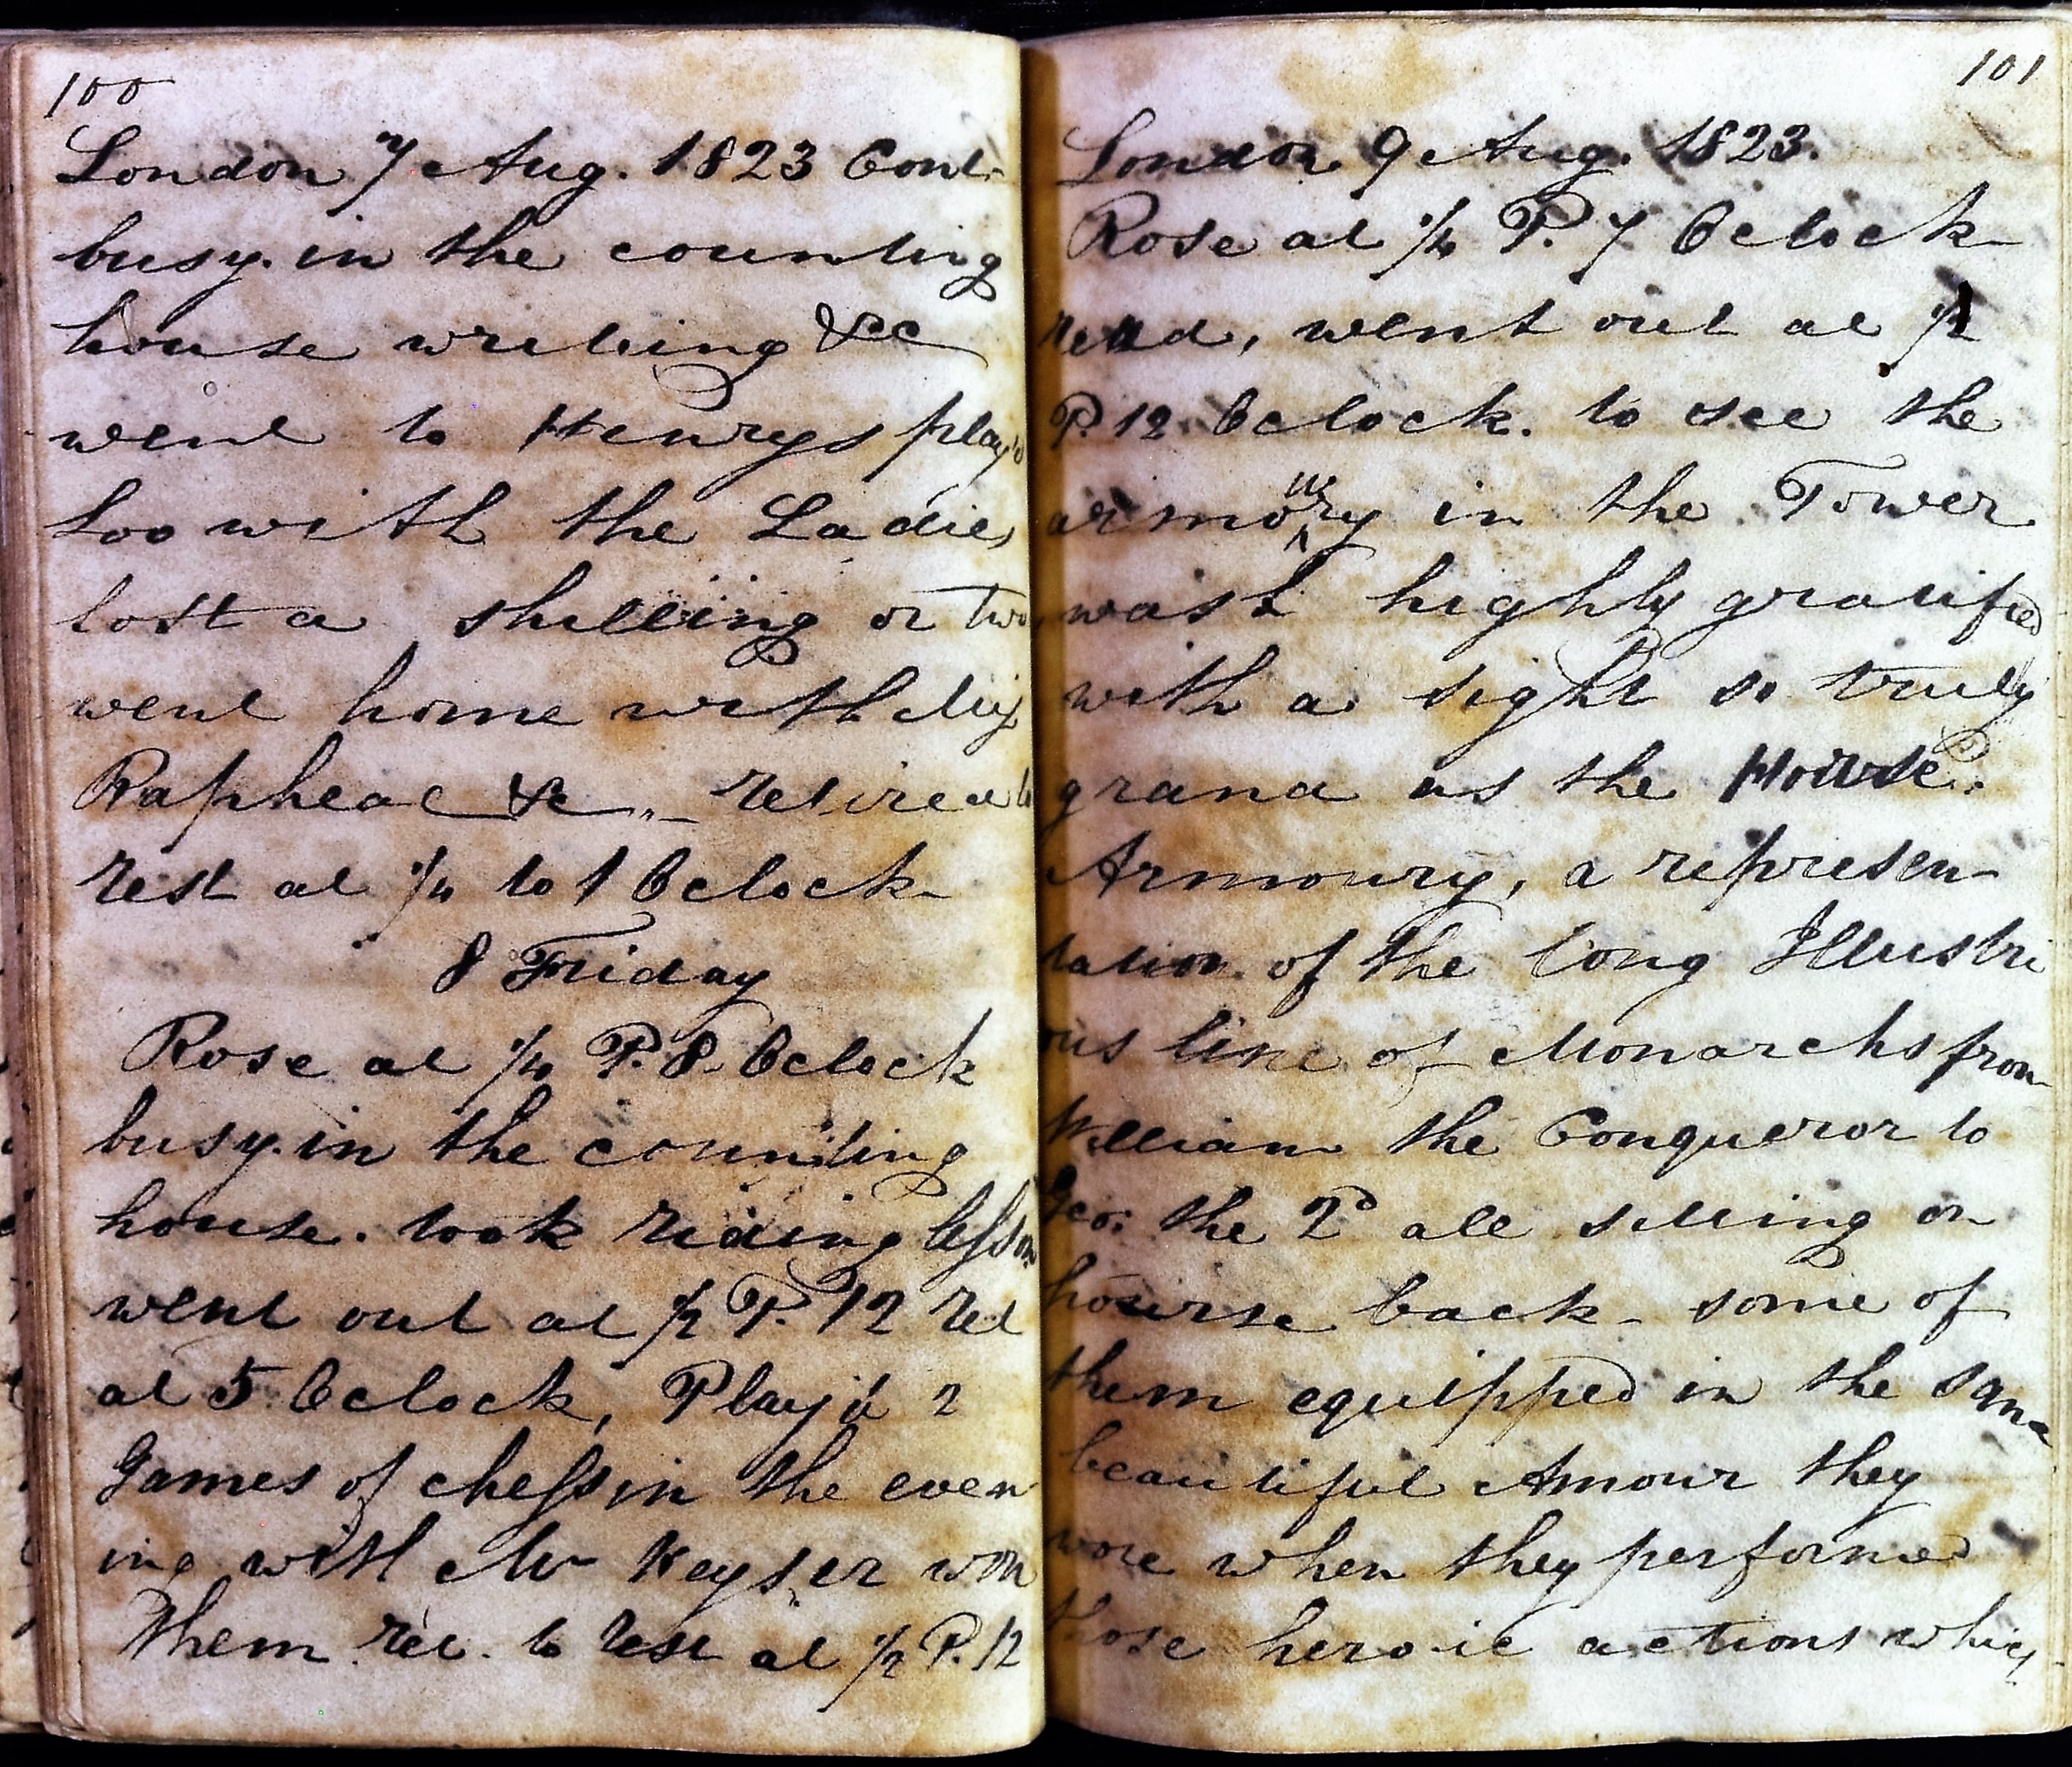 100
London 7 Aug. 1823 Cont.
busy in the counting
house writing &cc
went to Henrys play'd
Loo with the Ladies
lost a shilling or two,
went home with Miss
Rapheal &c „ retired to
rest at 1/4 to 1 Oclock
8 Friday
Rose at 1/4 P. 8. Oclock
busy in the counting
house. took riding lesson
went out at 1/2 P. 12 ret
at 5 Oclock, Play'd 2
Games of chess in the even
ing with Mr Keyser won
Them ret. to rest at 1/2 P. 12
101
London 9 Aug. 1823.
Rose at 1/4 P. 7 Oclock
read, went out at 1/2
P. 12 Oclock. to see the
armoury in the Tower
was highly gratified
with a sight so truly
grand as the Hourse
Armoury, a represen
tation of the long Illustri
ous line of Monarchs from
William the Conqueror to
Geo: the 2d all setting on
hourse back - some of
them equipped in the same
beautiful Amour they
wore when they performed
those heroic actions which